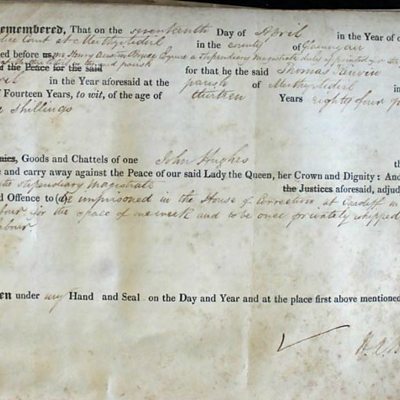 emembered, That on the seventeenth Day of April in the Year of o
lice Court at Merthyr Tidvil in the county of Glamorgan
ed before us, Henry Austin Bruce Esquire a Stipendiary Magistrate duly appointed
and parish
of the Peace for the said for that he the said Thomas
pril in the Year aforesaid at the parish of Merthyr Tidvil
of Fourteen Years, to wit, of the age of thirteen Years eighty four p
e shillings
nies, Goods and Chattels of one John Hughes th
e and carry away against the Peace of our said Lady the Queen, her Crown and Dignity: And
Stipendiary Magistrate the Justices aforesaid, adjud
d Offence to (a) be imprisoned in the House of Correction, at Cardiff in
labour for the space of one week and to be once privately whipped
labour
en under my Hand and Seal on the Day and Year and at the place first above mentioned